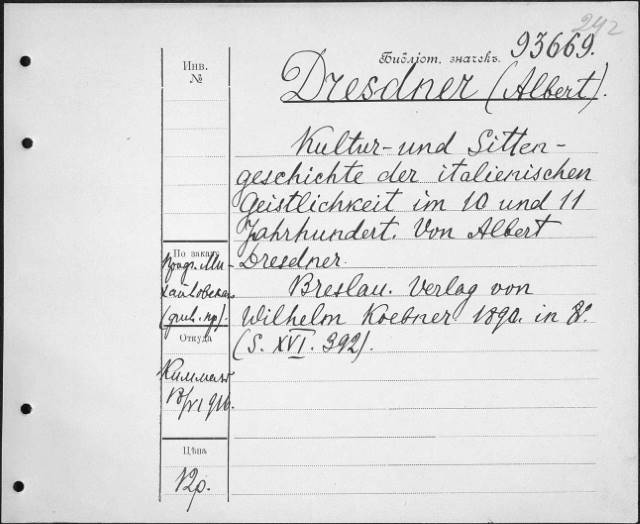 242
Библіот. значекъ. 93669.
Инв.
№
Dresdner (Albert).
Kultur- und Sitten-
geschichte der italienischen
Geistlichkeit im 10 und 11
Jahrhundert. Von Albert
Dresdner.
Breslau. Verlag von
Wilhelm Koebner 1890. in 8°.
(S. XVI. 392).
По заказу
Откуда
Киммель
Цѣна
12р.